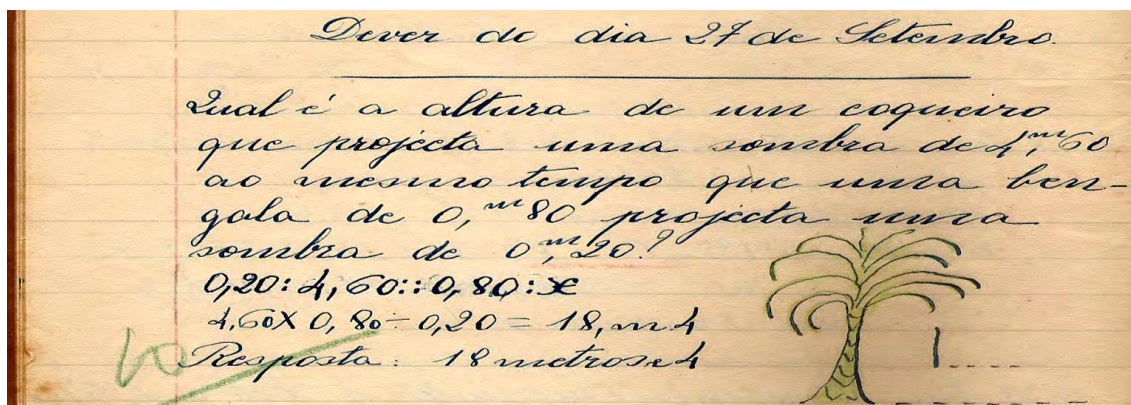 Dever do dia 27 de Setembro.
Qual é a altura de um coqueiro
que projecta uma sombra de 4,ᵐ60
ao mesmo tempo que uma ben-
gala de 0,ᵐ80 projecta uma
sombra de 0,ᵐ20?
0,20:4,60::0,80:x
4,60X0,80÷0,20=18,m4
Resposta: 18 metros e 4